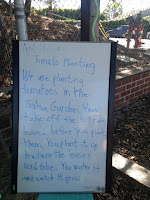 Tomato Planting
We are planting
tomatoes in the
Salsa Garden. You
take off the
leaves before you plant.
Then, you plant it up
to where the leaves
used to be. You water it
and watch it grow!